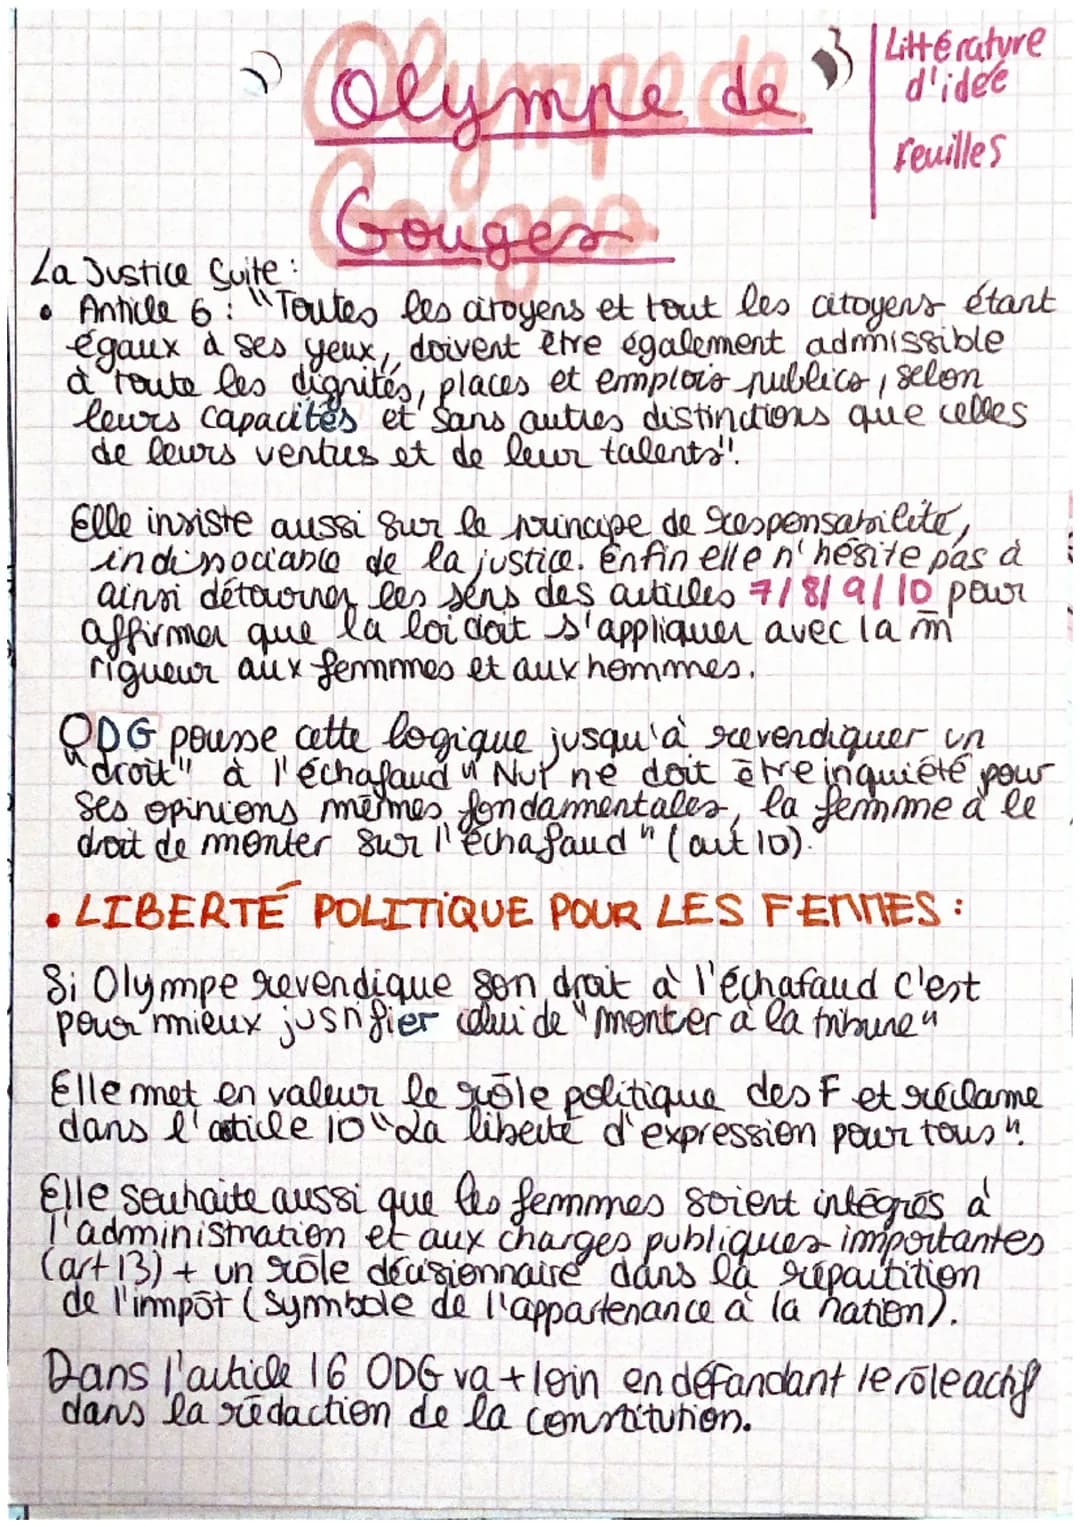 Olympe de
Gouges
Littérature
d'idée
feuilles
La Justice Suite :
• Article 6 : "Toutes les citoyens et tout les citoyens étant
égaux à ses yeux, doivent être également admissible
à toute les dignités, places et emplois publics, selon
leurs capacités et sans autres distinctions que celles
de leurs vertus et de leur talents".
Elle insiste aussi sur le principe de responsabilité,
indissociable de la justice. Enfin elle n'hésite pas à
ainsi détourner les sens des articles 7/8/9/10 pour
affirmer que la loi doit s'appliquer avec la m̄
rigueur aux femmes et aux hommes.
ODG pousse cette logique jusqu'à revendiquer un
"droit" à l'échafaud "Nul ne doit être inquiété pour
ses opinions mêmes fondamentales, la femme à le
droit de monter sur l'échafaud" (art 10).
• LIBERTÉ POLITIQUE POUR LES FEMMES :
Si Olympe revendique son droit à l'échafaud c'est
pour mieux justifier celui de "monter à la tribune"
Elle met en valeur le rôle politique des F et réclame
dans l'article 10 "La liberté d'expression pour tous".
Elle souhaite aussi que les femmes soient intégrés à
l'administration et aux charges publiques importantes
(art 13) + un rôle décisionnaire dans la répartition
de l'impôt (symbole de l'appartenance à la nation).
Dans l'article 16 ODG va + loin en défandant le rôle actif
dans la rédaction de la constitution.